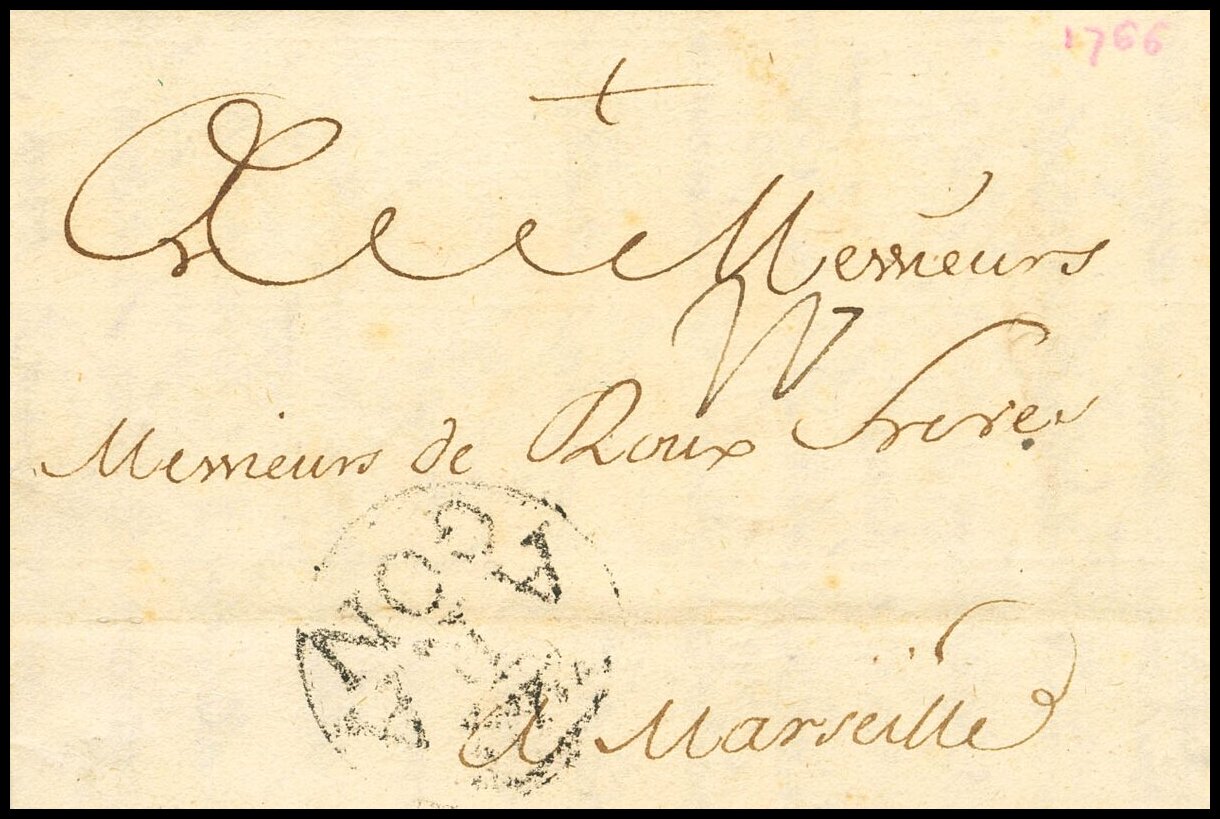 1766
+
A Messieurs
Messieurs de Roux Freres
AGON
A Marseille